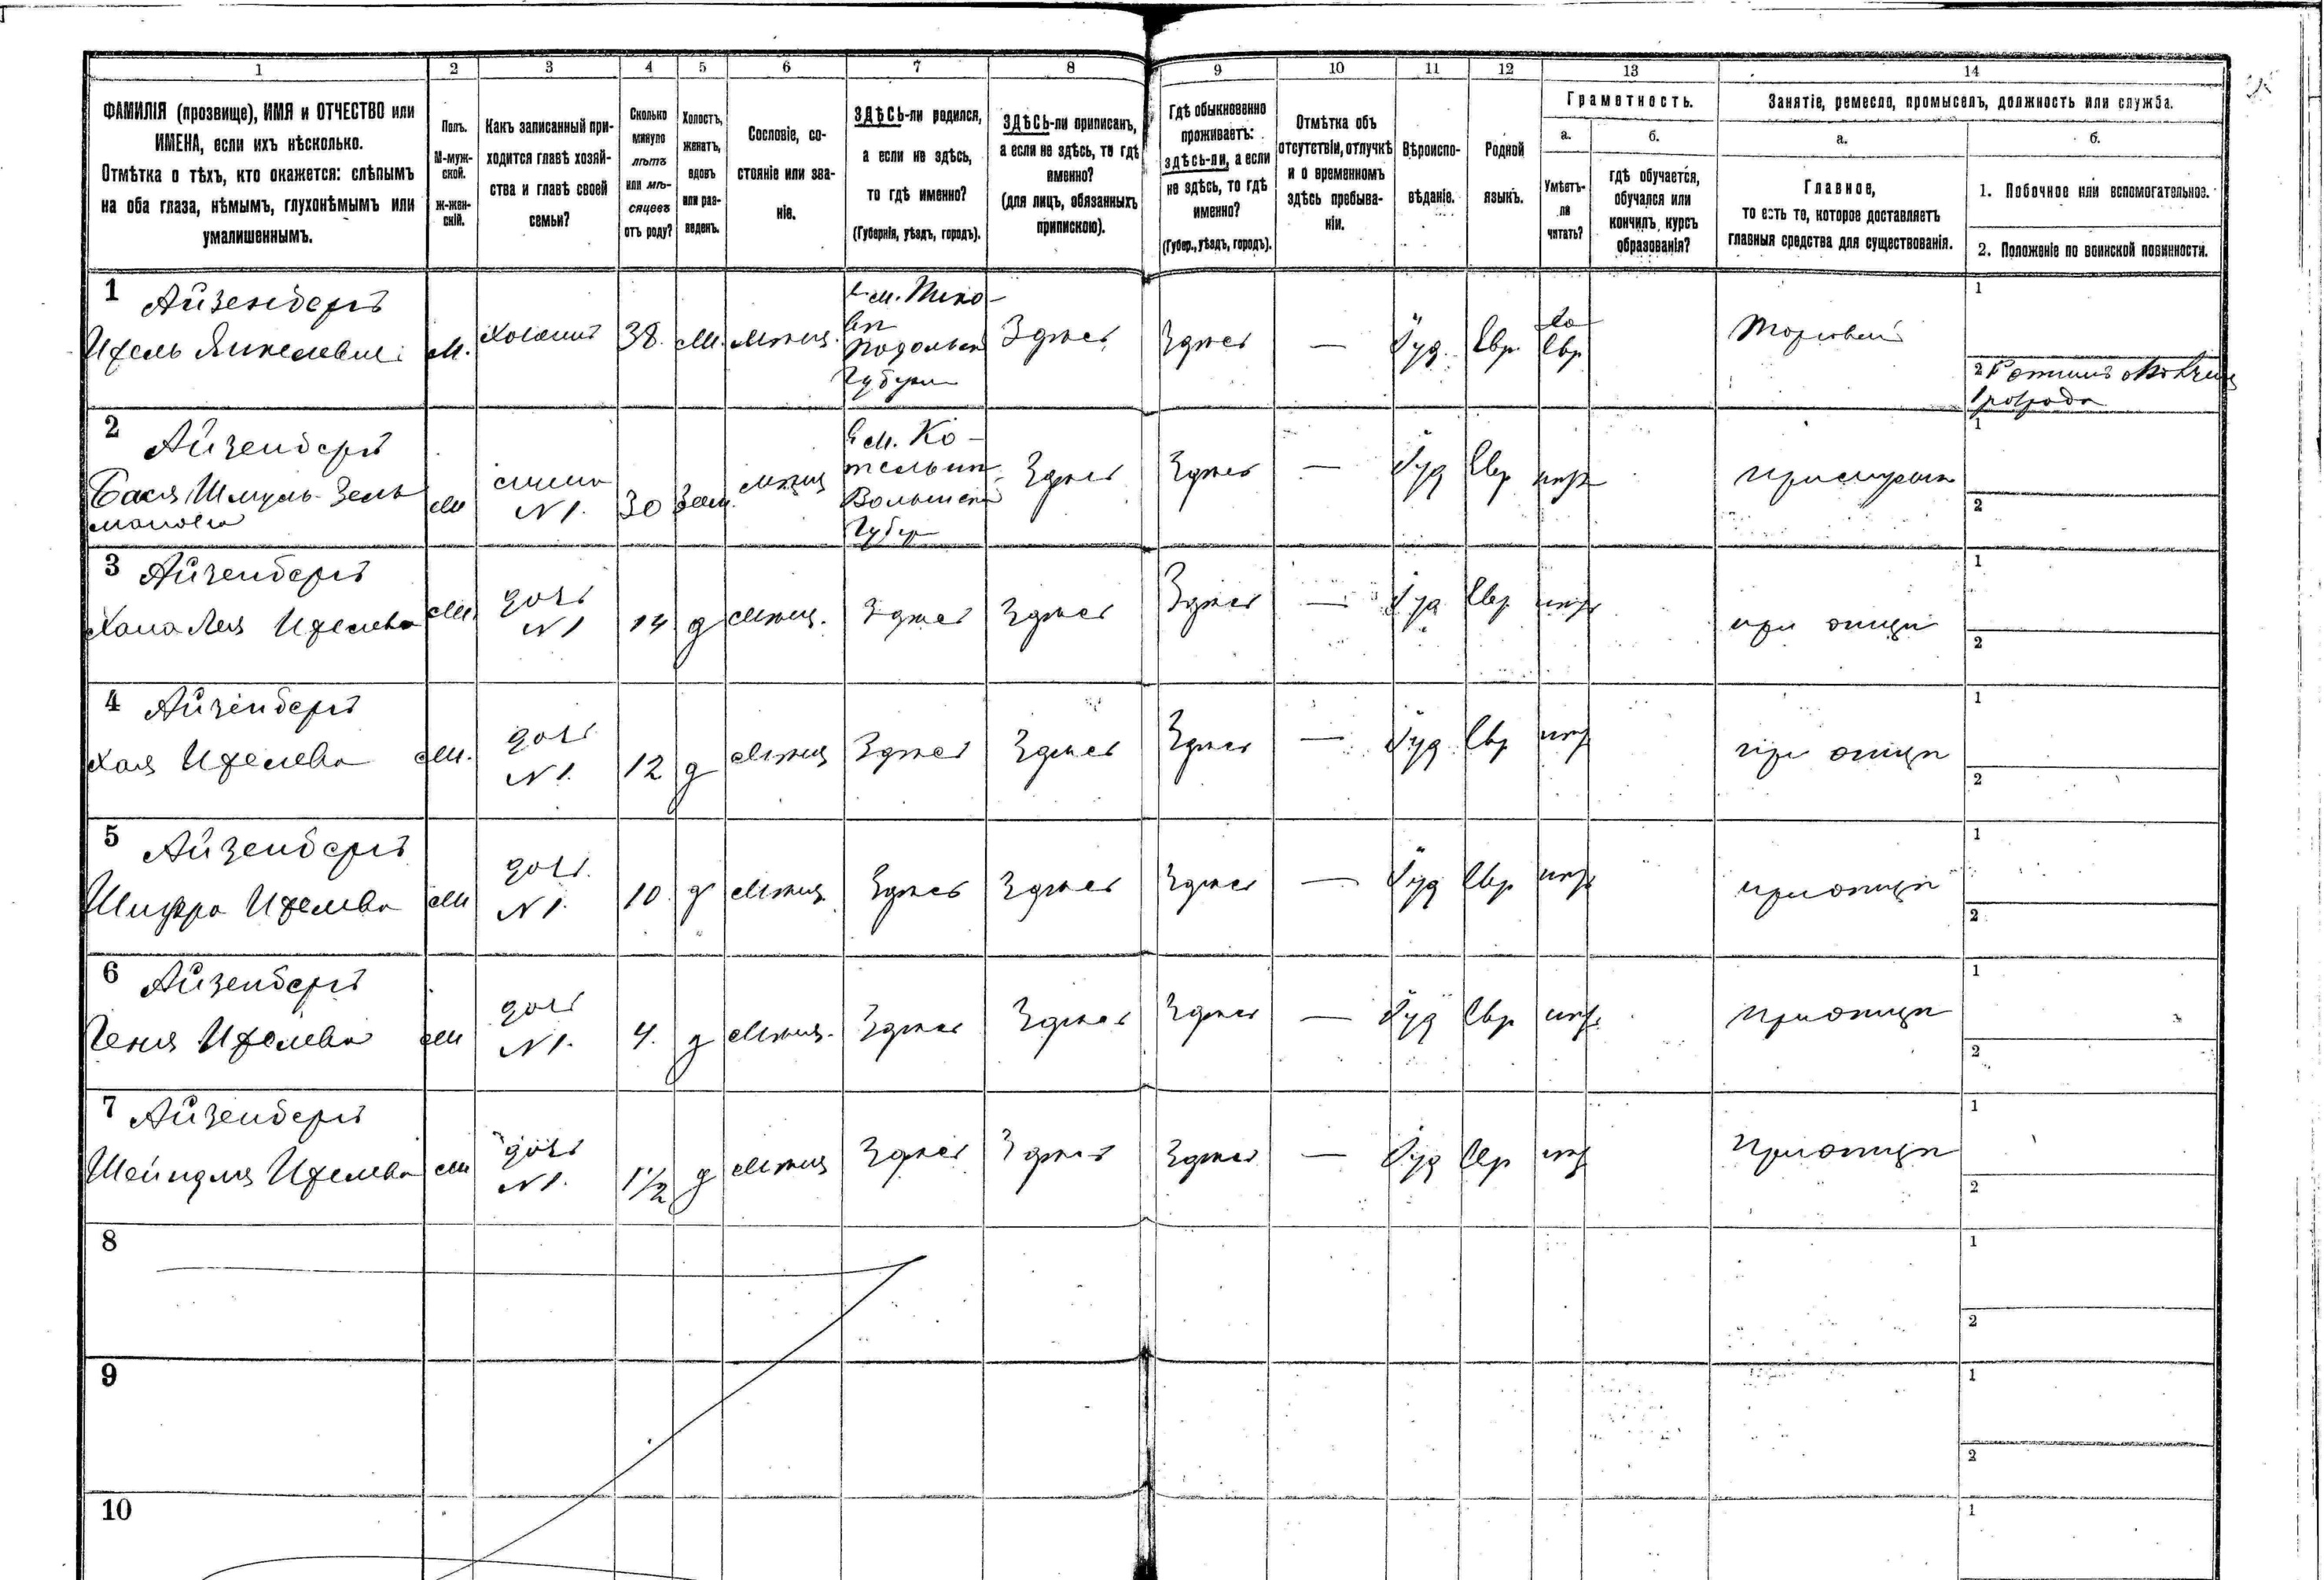 1 2 3 4 5 6 7 8 9 10 11 12 13 14
ФАМИЛІЯ (прозвище), ИМЯ и ОТЧЕСТВО или
ИМЕНА, если ихъ нѣсколько.
Отмѣтка о тѣхъ, кто окажется: слѣпымъ
на оба глаза, нѣмымъ, глухонѣмымъ или
умалишеннымъ.
Полъ.
М-муж-
ской.
Ж-жен-
скій.
Какъ записанный при-
ходится главѣ хозяй-
ства и главѣ своей
семьи?
Сколько
минуло
лѣтъ
или мѣ-
сяцевъ
отъ роду?
Холостъ,
женатъ,
вдовъ
или раз-
веденъ.
Сословіе, со-
стояніе или зва-
ніе.
ЗДѢСЬ-ли родился,
а если не здѣсь,
то гдѣ именно?
(Губернія, уѣздъ, городъ).
ЗДѢСЬ-ли приписанъ,
а если не здѣсь, то гдѣ
именно?
(для лицъ, обязанныхъ
припискою).
Гдѣ обыкновенно
проживаетъ:
здѣсь-ли, а если
не здѣсь, то гдѣ
именно?
(Губер., уѣздъ, городъ).
Отмѣтка объ
отсутствіи, отлучкѣ
и о временномъ
здѣсь пребыва-
ніи.
Вѣроиспо-
вѣданіе.
Родной
языкъ.
Грамотность.
а.
Умѣетъ-
ли
читать?
б.
гдѣ обучается,
обучался или
кончилъ курсъ
образованія?
Занятіе, ремесло, промыселъ, должность или служба.
а.
Главное,
то есть то, которое доставляетъ
главныя средства для существованія.
б.
1. Побочное или вспомогательное.
2. Положеніе по воинской повинности.
1
Айзенберъ
Ицель Янкелевич
М.
Хозяинъ
38.
М.
Мѣщ.
Подольск
Губерн
Здѣсь
Здѣсь
—
Іуд.
Евр.
Евр
Торговый
1
2
1 разряда
2
Айзенберъ
Бася Шмуль-Зель
манова
N 1.
30
Зам.
мѣщ
м. Ко-
тельни
Волынской
Губер
Здѣсь
Здѣсь
—
Іуд
Евр
1
2
3
Айзенберъ
Хана Лея Ицелева
дочь
N 1
14
д
Мѣщ.
Здѣсь
Здѣсь
Здѣсь
—
Іуд
Евр
при отцѣ
1
2
4
Айзенберъ
Хая Ицелева
дочь
N 1.
12
д
Мѣщ
Здѣсь
Здѣсь
Здѣсь
—
Іуд
Евр
при отцѣ
1
2
5
Айзенберъ
Шифра Ицелева
дочь
N 1.
10
д
Мѣщ
Здѣсь
Здѣсь
Здѣсь
—
Іуд
Евр
при отцѣ
1
2
6
Айзенберъ
Геня Ицелева
дочь
N 1.
4.
д
Мѣщ.
Здѣсь
Здѣсь
Здѣсь
—
Іуд
Евр
при отцѣ
1
2
7
Айзенберъ
Шейндля Ицелева
дочь
N 1.
1 1/2
д
Мѣщ
Здѣсь
Здѣсь
Здѣсь
—
Іуд
Евр
При отцѣ
1
2
8
1
2
9
1
2
10
1